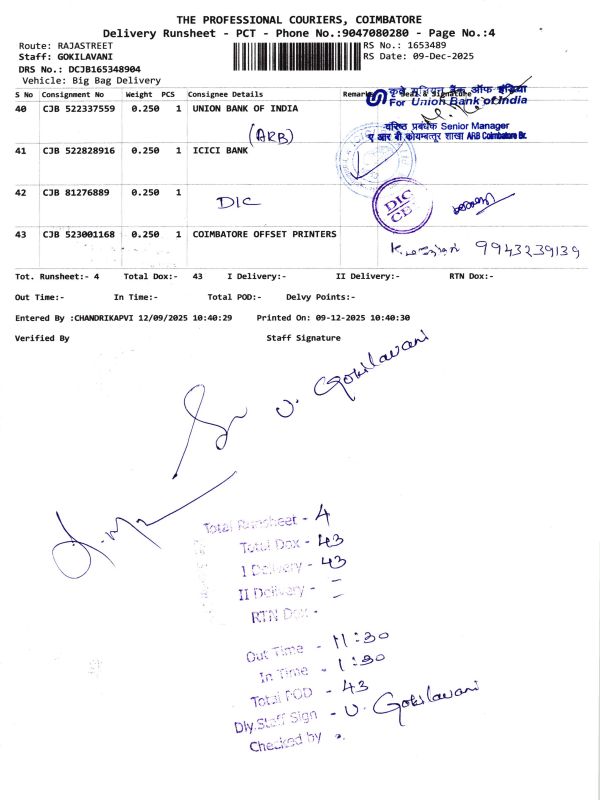 THE PROFESSIONAL COURIERS, COIMBATORE
Delivery Runsheet - PCT - Phone No.:9047080280 - Page No.:4
Route: RAJASTREET
RS No.: 1653489
Staff: GOKILAVANI
RS Date: 09-Dec-2025
DRS No.: DCJB165348904
Vehicle: Big Bag Delivery
S No Consignment No Weight PCS Consignee Details Remarks Seal & Signature
40 CJB 522337559 0.250 1 UNION BANK OF INDIA
(ARB)
कृते यूनियन बैंक ऑफ इंडिया
For Union Bank of India
वरिष्ठ प्रबंधक Senior Manager
ए आर बी कोयम्बत्तूर शाखा ARB Coimbatore Br.
41 CJB 522828916 0.250 1 ICICI BANK
42 CJB 81276889 0.250 1
DIC
DIC
CBE
43 CJB 523001168 0.250 1 COIMBATORE OFFSET PRINTERS
9943239139
Tot. Runsheet:- 4 Total Dox:- 43 I Delivery:- II Delivery:- RTN Dox:-
Out Time:- In Time:- Total POD:- Delvy Points:-
Entered By :CHANDRIKAPVI 12/09/2025 10:40:29 Printed On: 09-12-2025 10:40:30
Verified By Staff Signature
U. Gokilavani
Total Runsheet - 4
Total Dox - 43
I Delivery - 43
II Delivery - -
RTN Dox -
Out Time - 11:30
In Time - 1:30
Total POD - 43
Dly.Staff Sign - U. Gokilavani
Checked by